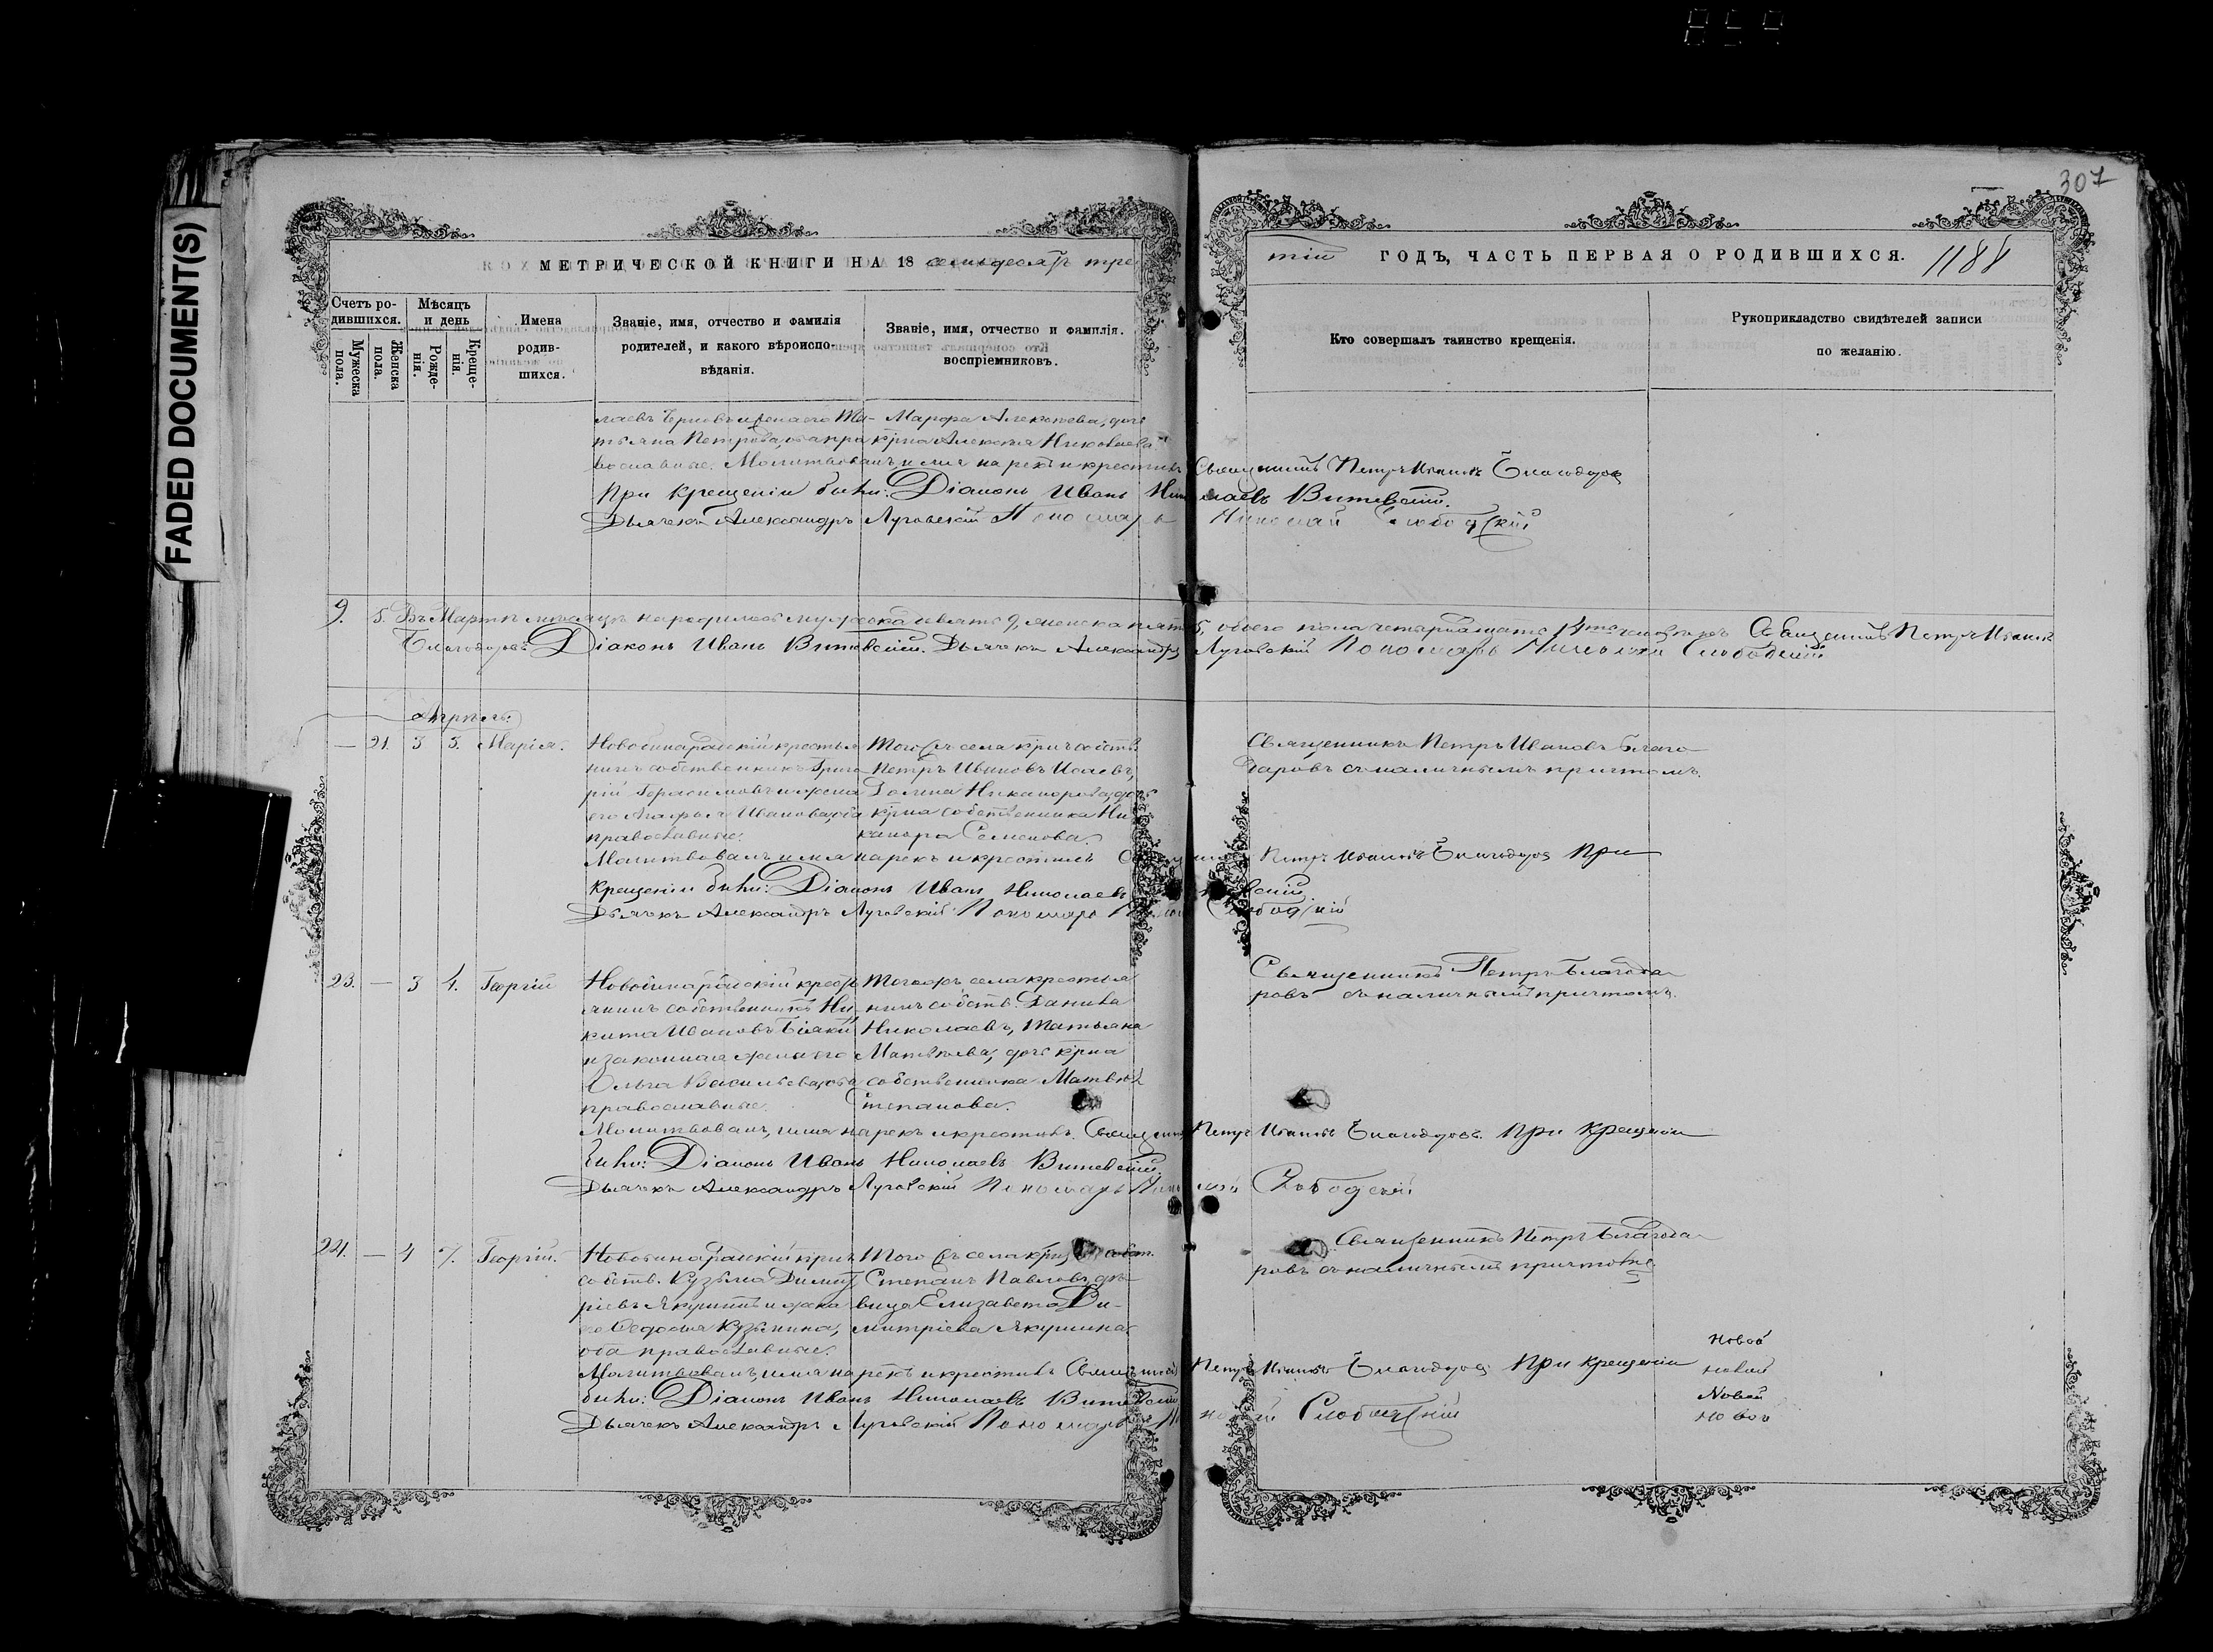 859
FADED DOCUMENT(S)
307
МЕТРИЧЕСКОЙ КНИГИ НА 18 семьдесятъ тре
тій ГОДЪ, ЧАСТЬ ПЕРВАЯ О РОДИВШИХСЯ. 1188
Счетъ ро-
дившихся.
Мужеска
пола.
Женска
пола.
Мѣсяцъ
и день
Рожде-
нія.
Креще-
нія.
Имена
родив-
шихся.
Званіе, имя, отчество и фамилія
родителей, и какого вѣроиспо-
вѣданія.
Званіе, имя, отчество и фамилія.
воспріемниковъ.
Кто совершалъ таинство крещенія.
Рукоприкладство свидѣтелей записи
по желанію.
лаевъ и жена его Та-
тьяна Петрова, оба пра
вославные.
Марфа Алексѣева, дочь
кр͠на Алексѣя Николаева
Молитвовалъ, имя нарекъ и крестилъ Священникъ Петръ Иванов Благодаров
При крещеніи были: Діаконъ Иванъ Николаевъ Витевскій.
Дьячекъ Александръ Луговскій Пономарь Николай Слободскій
9. 5. Въ Мартѣ мѣсяцѣ народилось мужеска девять 9, женска пять 5, обоего пола четырнадцать 14ть человѣкъ Священникъ Петръ Иванов
Благодаровъ Діаконъ Иванъ Витевскій. Дьячекъ Александръ Луговскій Пономарь Николай Слободскій
Апрѣль.
— 21. 3 5. Марія.
крестья
нинъ собственникъ Григо
рій Герасимовъ и жена
его Ивановна, оба
православные.
Того же села кр͠нъ собств.
Петръ Ивановъ Исаевъ,
Никанорова, дочь
кр͠на собственника Ни
канора Семенова.
Священникъ Петръ Ивановъ Благо
даровъ съ наличнымъ причтомъ.
Молитвовалъ, имя нарекъ и крестилъ Петръ Ивановъ Благодаров При
крещеніи были: Діаконъ Иванъ Николаевъ
Дьячекъ Александръ Луговскій Пономарь Слободскій
23. — 3 4. Георгій
крестья
янинъ собственникъ Ни
кита Ивановъ
и законная жена его
Ольга Васильева, оба
православные.
Того же села крестья
нинъ собств. Данила
Николаевъ, Татьяна
Матвѣева, дочь кр͠на
собственника Матвѣя
Степанова.
Священникъ Петръ Благода
ровъ съ наличнымъ причтомъ.
Молитвовалъ, имя нарекъ и крестилъ. Священникъ Петръ Ивановъ Благодаровъ. При крещеніи
были: Діаконъ Иванъ Николаевъ Витевскій.
Дьячекъ Александръ Луговскій Пономарь Николай Слободскій
24. — 4 7. Георгій.
собств. Кузьма Димит
ріевъ Якушинъ и жена
его Федосья Кузьмина,
оба православные.
Того же села кр͠нъ собст.
Степанъ Павловъ, дѣ
вица Елизавета Ди-
митріева Якушина.
Священникъ Петръ Благода
ровъ съ наличнымъ причтомъ
Молитвовалъ, имя нарекъ и крестилъ Священникъ Петръ Ивановъ Благодаров При крещеніи
были: Діаконъ Иванъ Николаевъ Витевскій
Дьячекъ Александръ Луговскій Пономарь Николай Слободскій
Новой
новой
Новой
новой